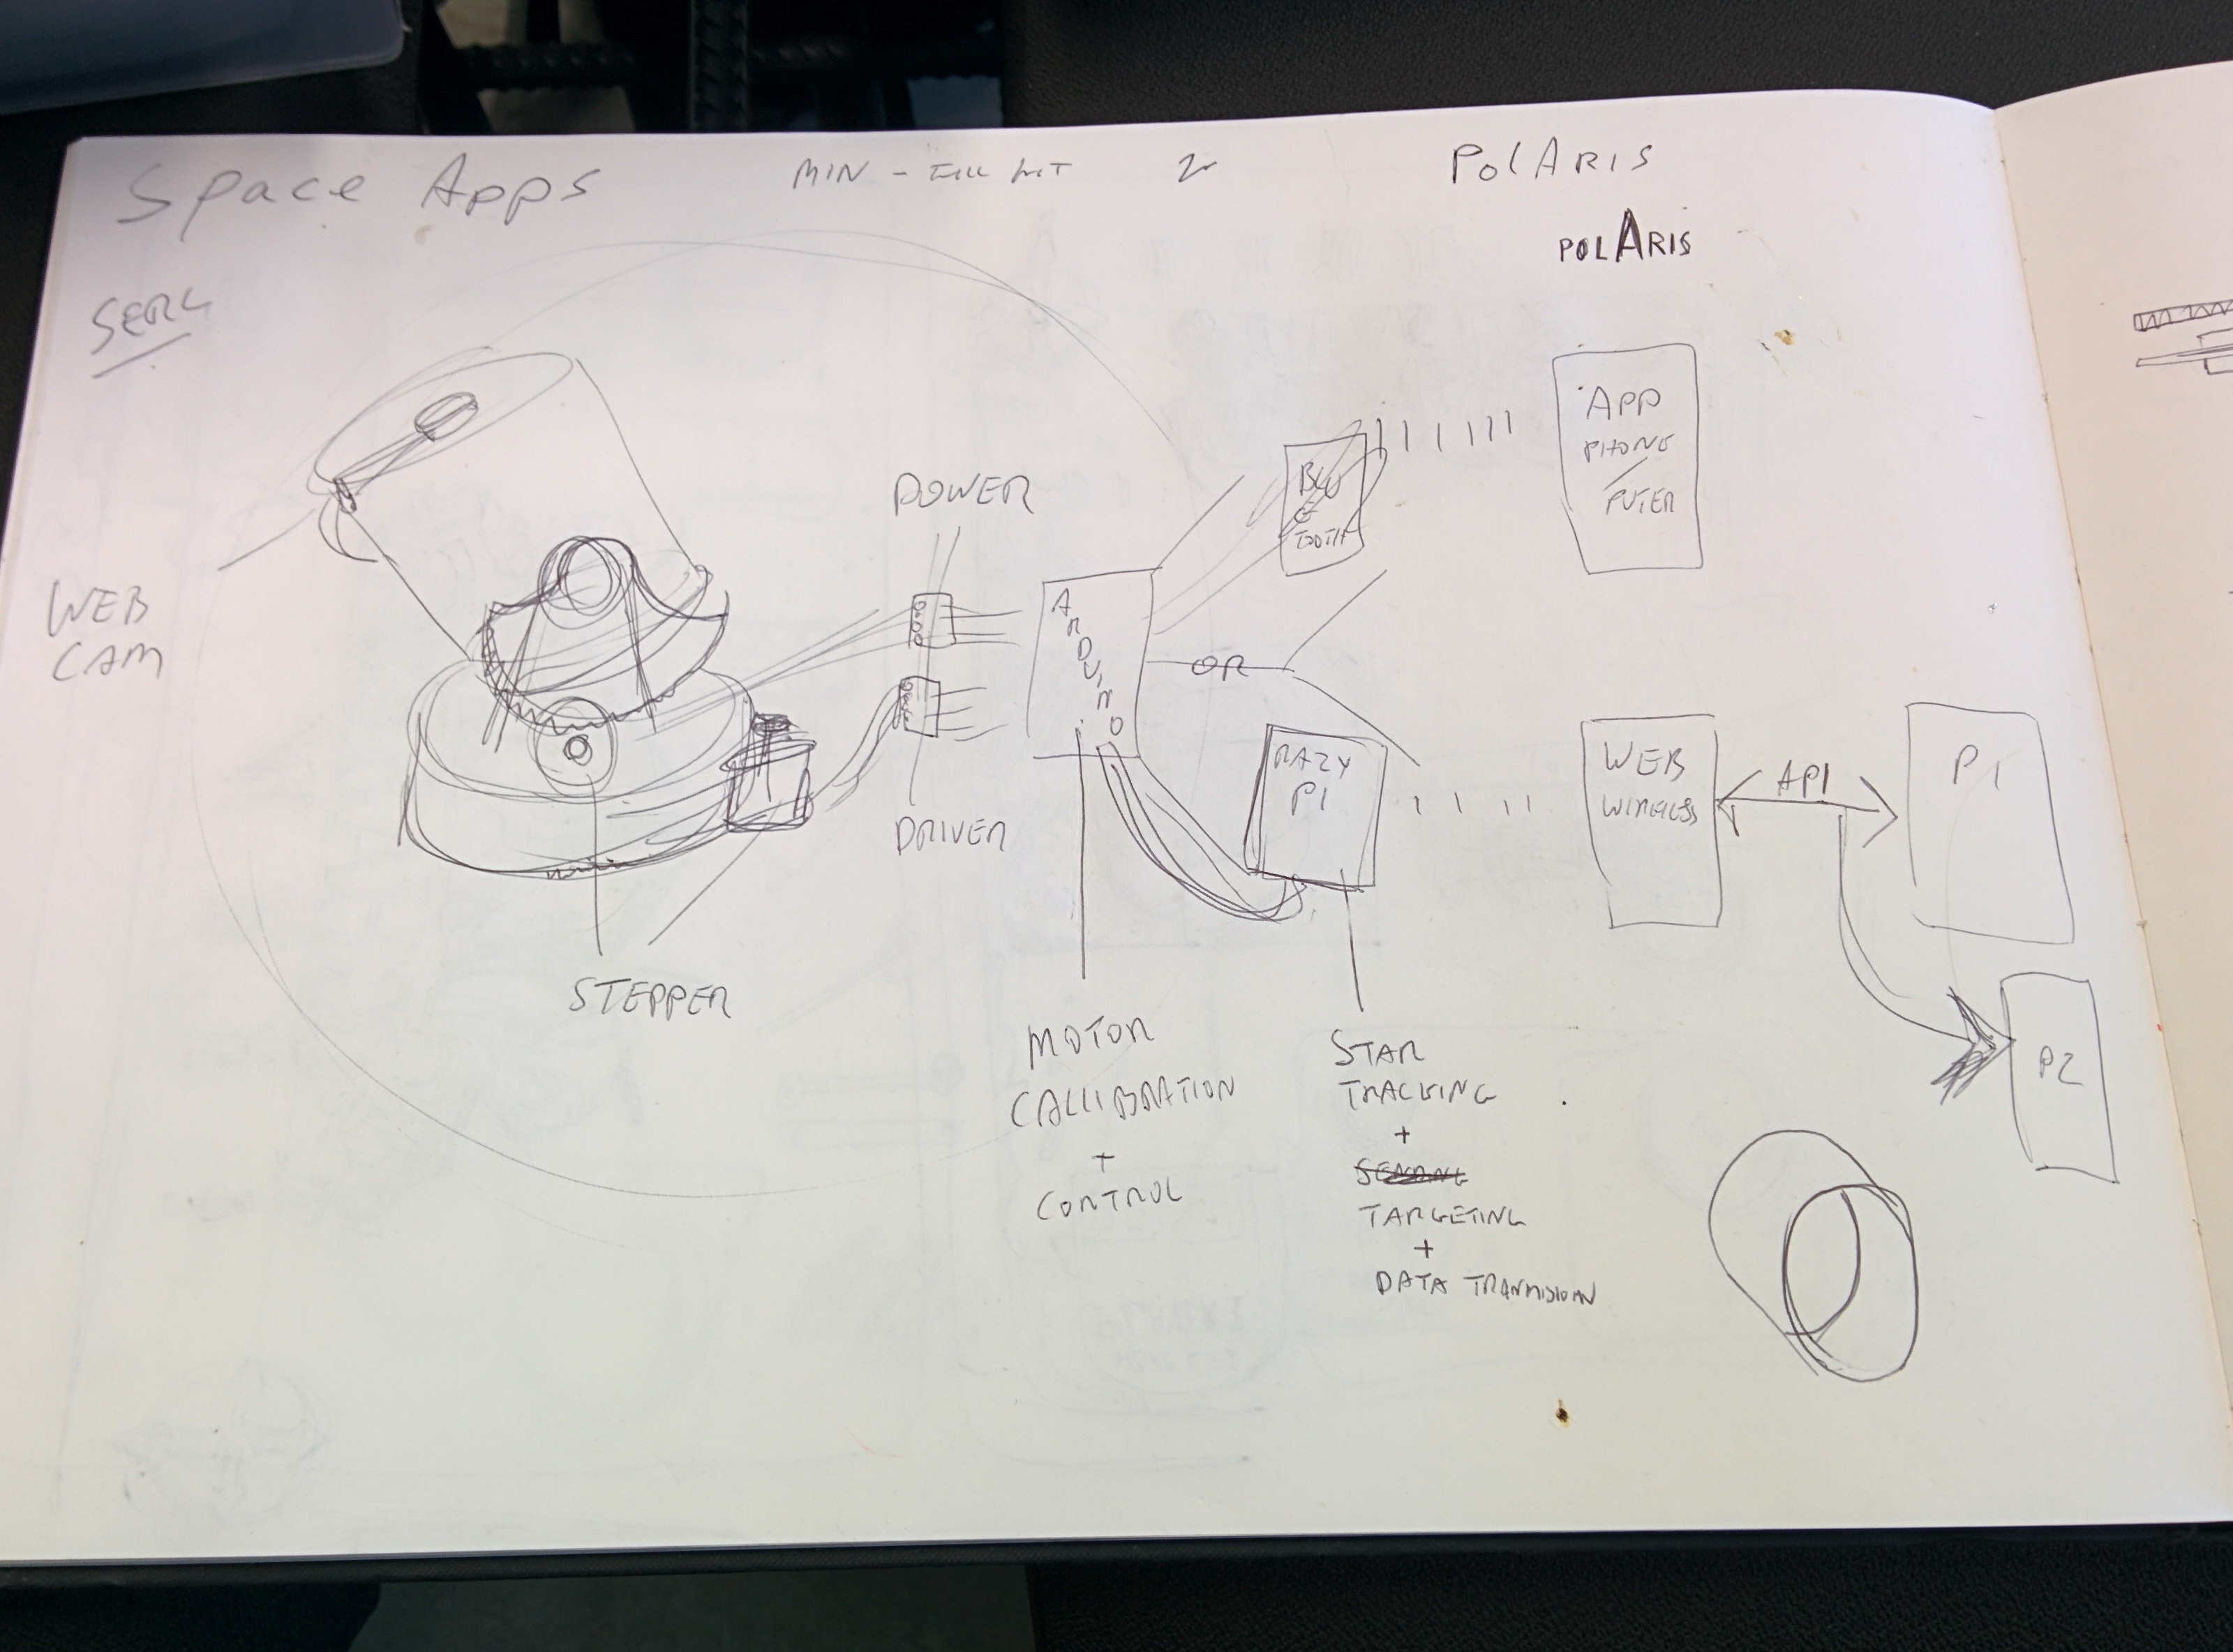 Space Apps
MIN -
POLARIS
POLARIS
WEB
CAM
POWER
DRIVER
STEPPER
ARDUINO
BLU
E
TOOTH
APP
PHONE
/
PUTER
OR
RAZY
PI
WEB
WIRELESS
API
P1
P2
MOTOR
CALLIBRATION
+
CONTROL
STAR
TRACKING
+
TARGETING
+
DATA